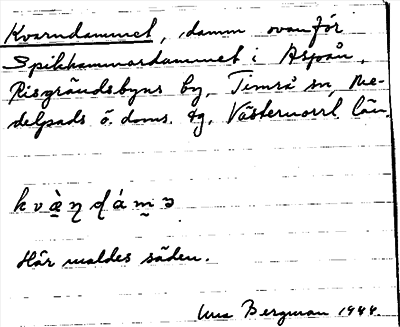 Kvarndammet, damm ovanför
Spikhammardammet i Aspån,
Risgrändsbyns by, Timrå sn, Me-
delpads ö. doms. tg, Västernorrl. län.
kvæ̀ṇḍám̬ə
Här maldes säden.
Bergman 1944.